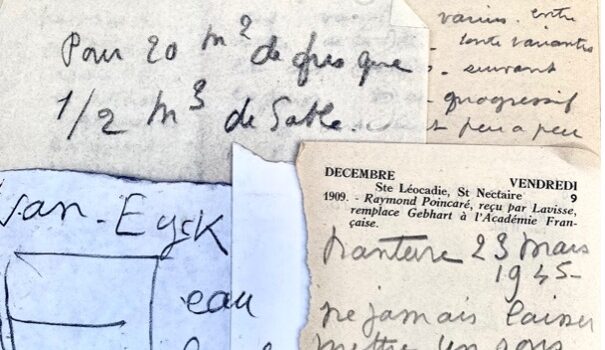 Pour 20 m² de
1/2 m³ de Sable.
varies. entre
variantes
suivant
progressif
peu à peu
Van-Eyck
eau
DECEMBRE VENDREDI
Ste Léocadie, St Nectaire 9
1909. - Raymond Poincaré, reçu par Lavisse,
remplace Gebhart à l'Académie Fran-
çaise.
Nanterre 23 Mars
1945
ne jamais laisser
mettre un